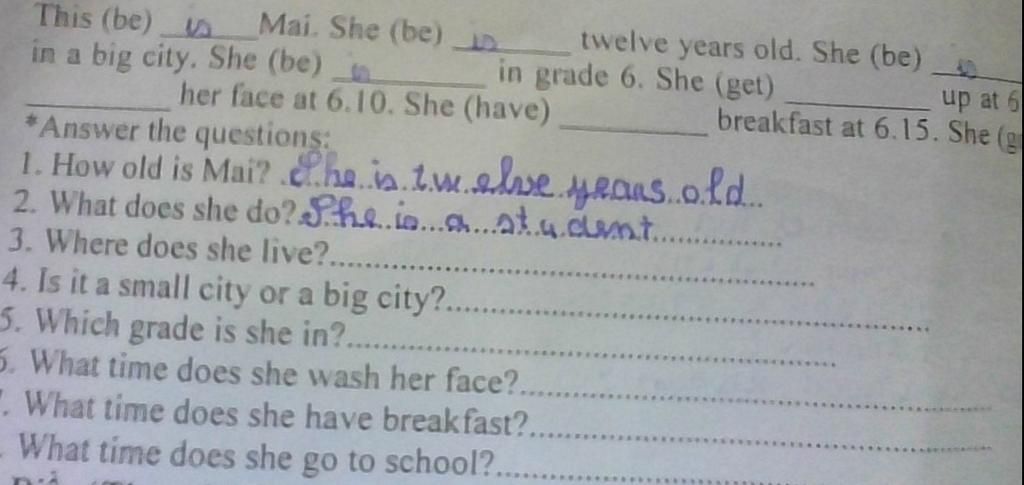 This (be) is Mai. She (be) is twelve years old. She (be) is
in a big city. She (be) is in grade 6. She (get) ________ up at 6
________ her face at 6.10. She (have) ________ breakfast at 6.15. She (g
*Answer the questions:
1. How old is Mai? She is twelve years old..
2. What does she do? She is a student..............
3. Where does she live?..............................
4. Is it a small city or a big city?..............................
5. Which grade is she in?..............................
. What time does she wash her face?..............................
. What time does she have breakfast?..............................
What time does she go to school?..............................